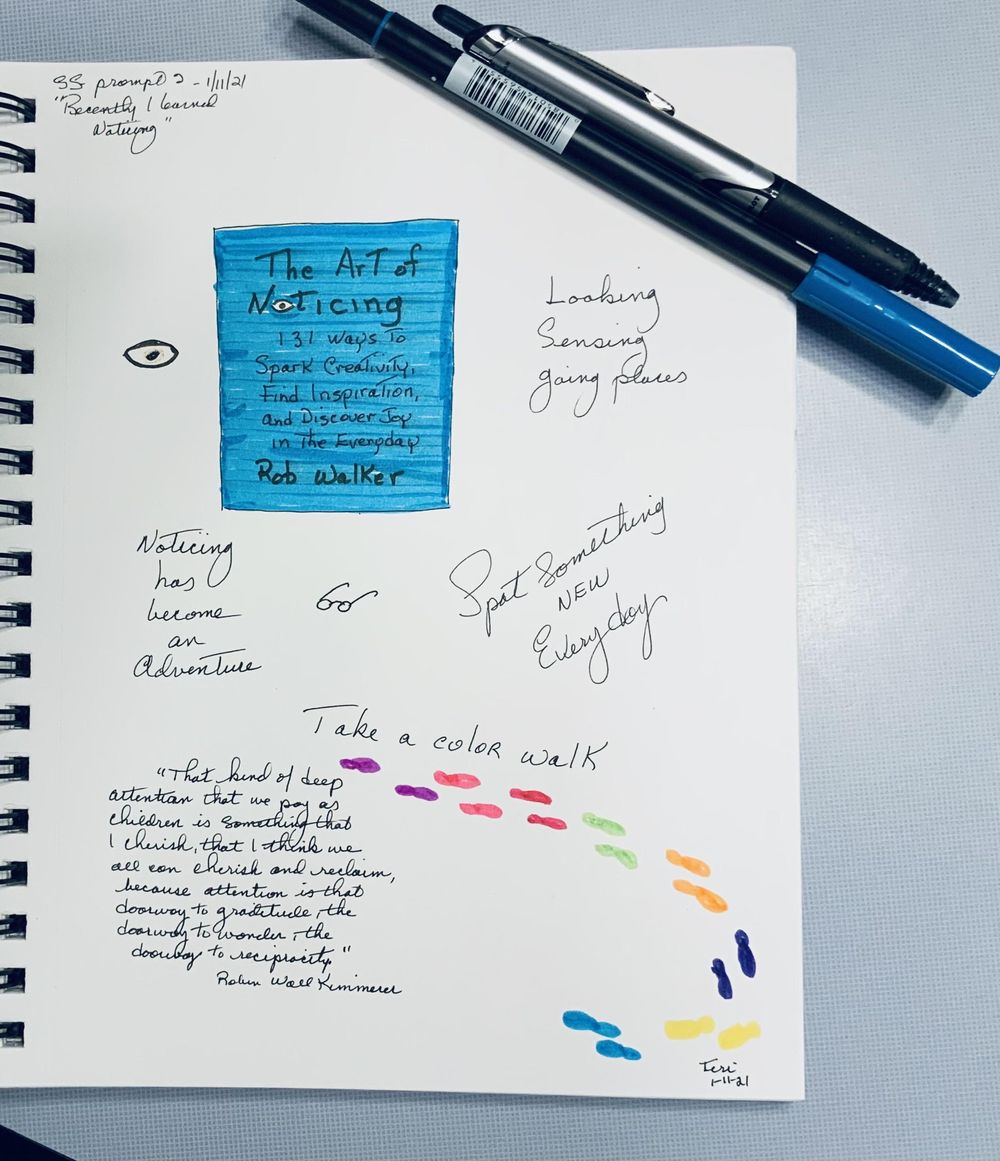 SS prompt 2 - 1/11/21
"Recently I learned
Noticing"
The Art of
Noticing
131 Ways To
Spark Creativity,
Find Inspiration,
and Discover Joy
in The Everyday
Rob Walker
Looking
Sensing
going places
Noticing
has
become
an
Adventure
Spot Something
NEW
Every day
Take a color walk
"That kind of deep
attention that we pay as
children is something that
I cherish, that I think we
all can cherish and reclaim,
because attention is that
doorway to gratitude, the
doorway to wonder, the
doorway to reciprocity."
Robin Wall Kimmerer
Teri
1-11-21